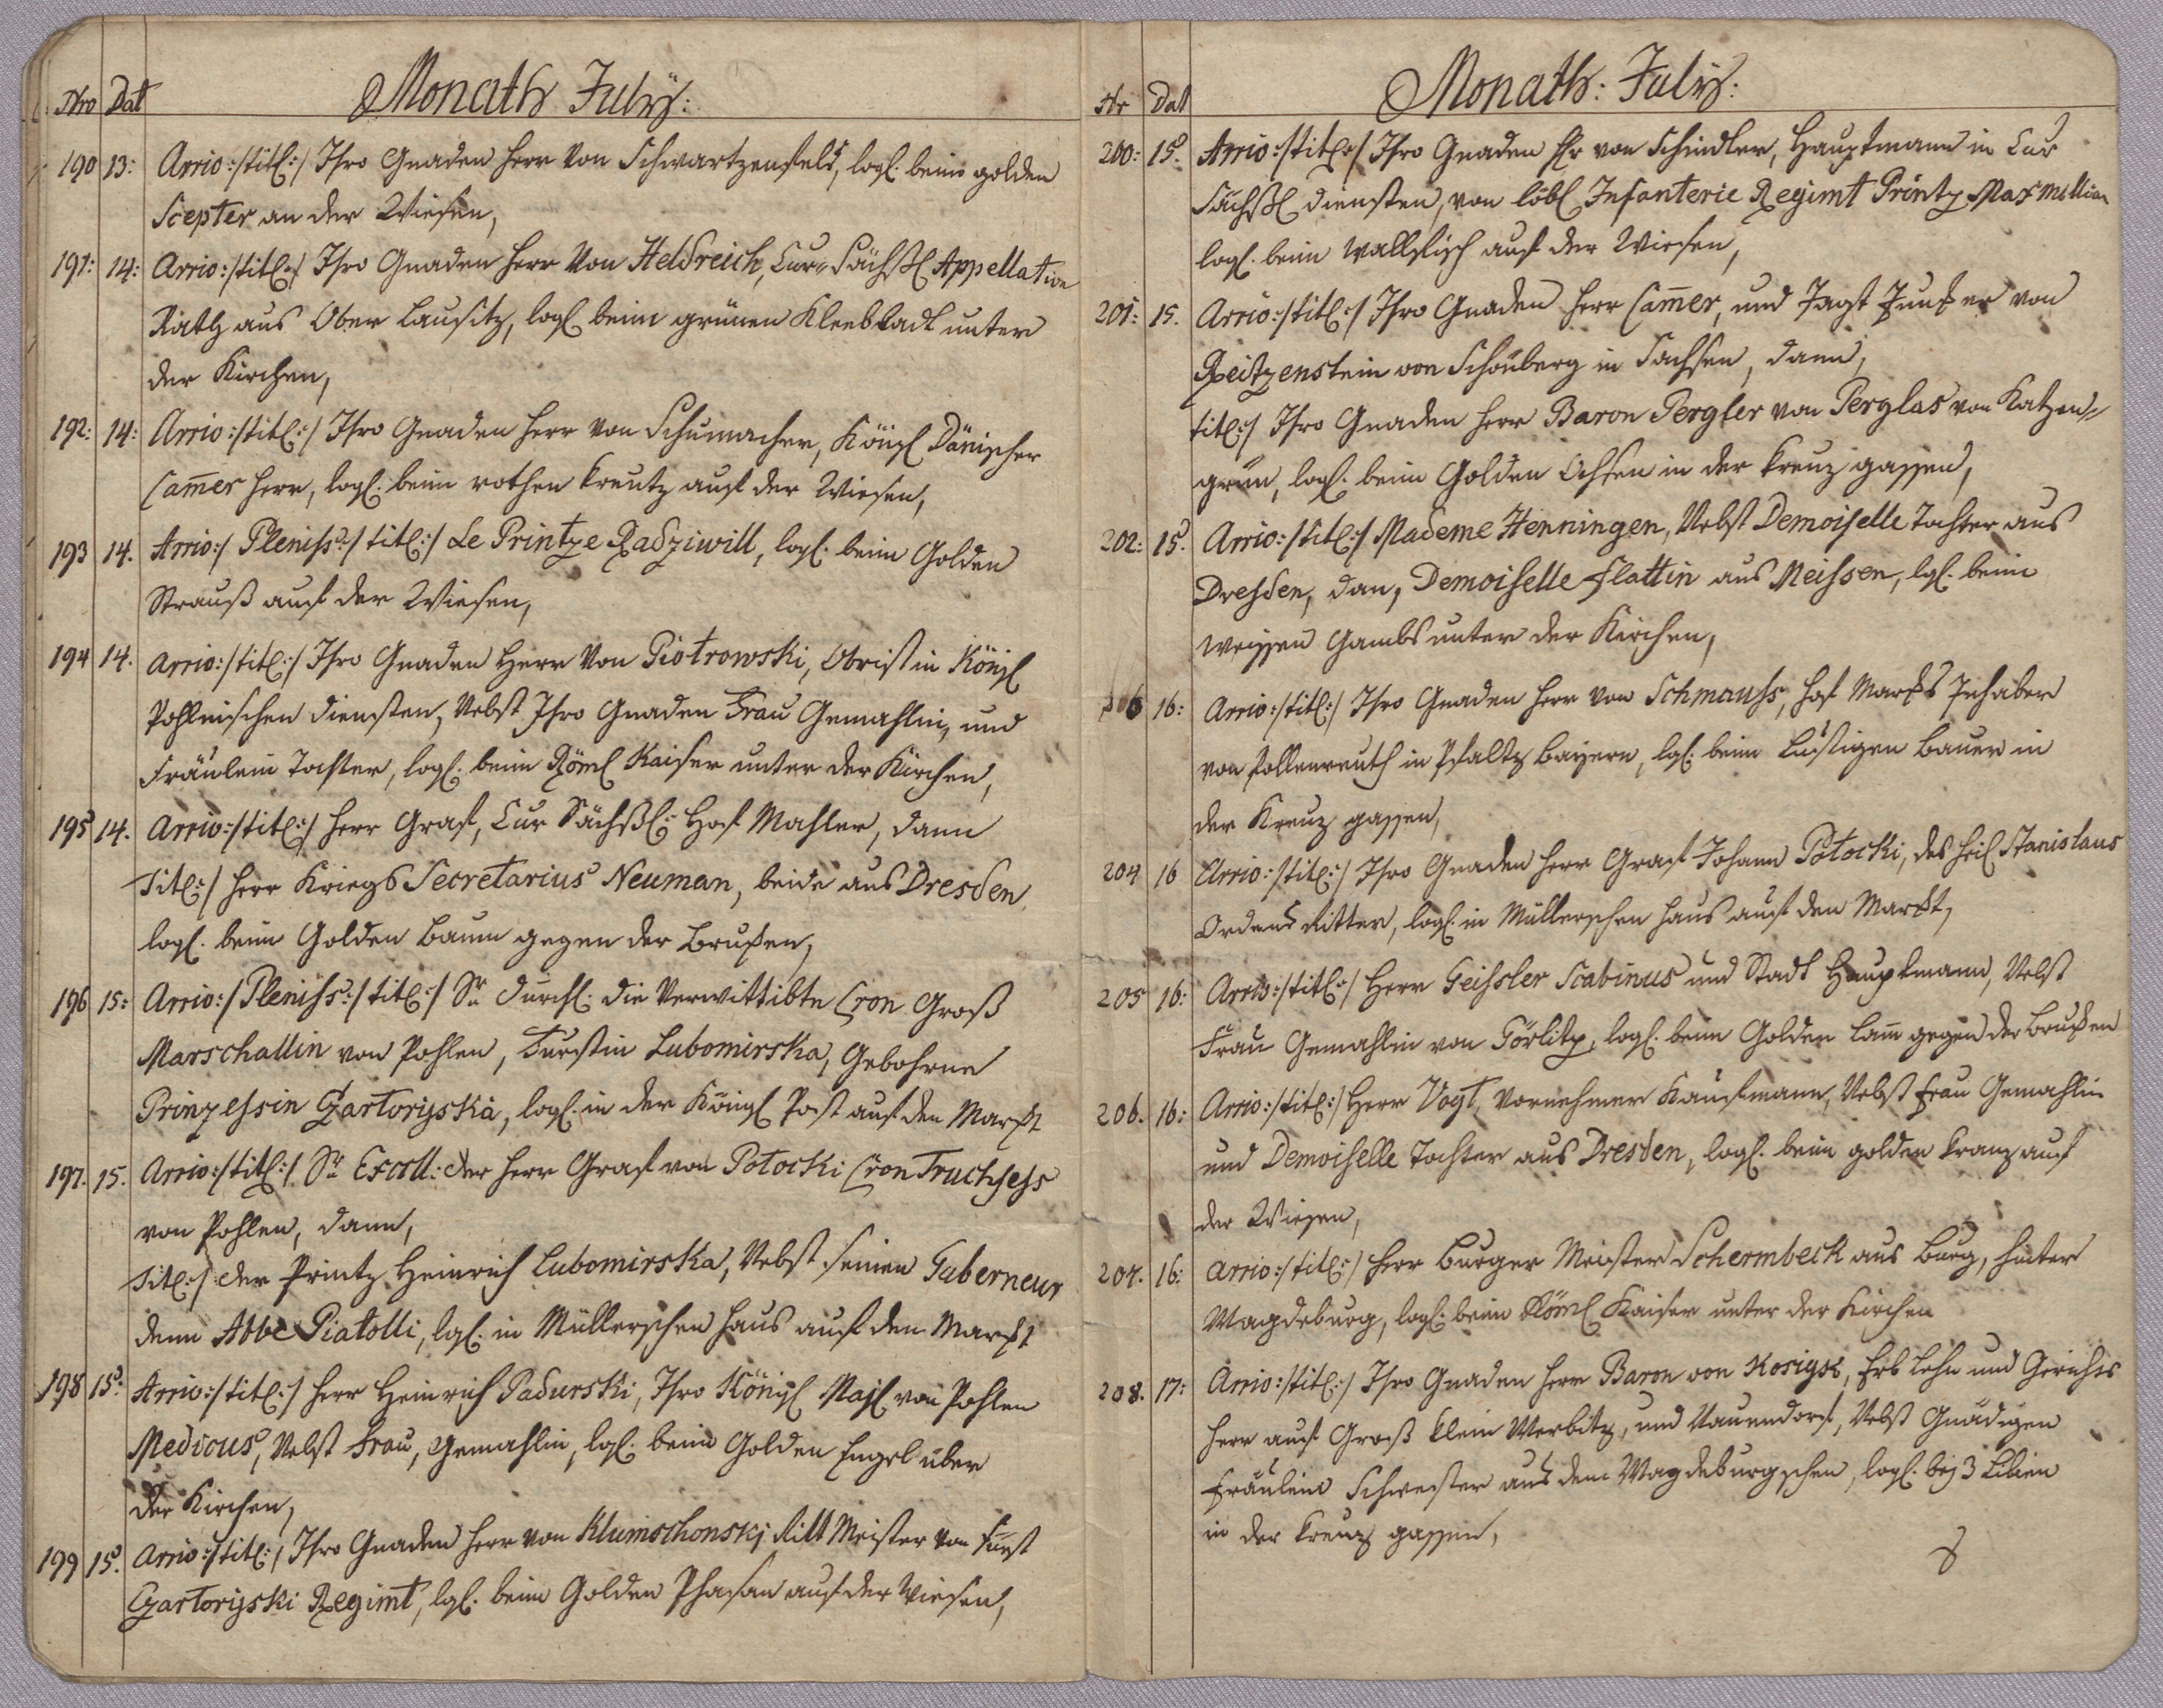 Nro Dat Monath Julÿ:
190 13: Arrio:/tit[:]/ Ihro Gnaden Herr von Schwartzenfeld, log[. beim golden
Scepter an der Wiesen,
191: 14: Arrio:/tit[:/ Ihro Gnaden Herr Von Heldreich, Cur-Sächß[ Appellation
Rath aus Ober Lausitz, log[ beim grünen Kleebladl unter
der Kirchen,
192: 14: Arrio:/tit[:/ Ihro Gnaden Herr von Schumacher, Königl Dänischer
Cam̅er Herr, log[. beim rothen Creutz auf der Wiesen,
193 14. Arrio:/ Pleniss:/ tit[:/ Le Printze Radziwill, log[. beim Golden
Strauß auf der Wiesen,
194 14. Arrio:/tit[:/ Ihro Gnaden Herr Von Piotrowski, Obrist in Königl
Pohlnischen Diensten, Nebst Ihro Gnaden Frau Gemahlin, und
Fräulein Tochter, log[. beim Röml Kaiser unter der Kirchen,
195 14. Arrio:/tit[:/ Herr Graf, Cur Sächß[: Hof Mahler, dann
Tit[:/ Herr Kriegs Secretarius Neuman, beide aus Dresden
log[. beim Golden Baum gegen der Brucken,
196 15: Arrio:/ Pleniss:/ tit[:/ Sr Durchl: die Verwittibte Cron Groß
Marschallin von Pohlen, Furstin Lubomirska, Gebohrne
Prinzessin Czartoryska, log[. in der Königl Post auf den Markt
197. 15. Arrio:/tit[:/ Sr Excell: der Herr Graf von Potocki Cron Truchsess
von Pohlen, dann,
Tit[:/ der Printz Heinrich Lubomirska, Nebst seinen Guberneur
dem Abbe Piatolli, lg[. in Müllerschen Haus auf den Markt
198 15: Arrio:/tit[:/ Herr Heinrich Padurski, Ihro Königl Maj[ von Pohlen
Medicus, Nebst Frau, Gemahlin, lg[. beim Golden Engel über
der Kirchen,
199 15. Arrio:/tit[:/ Ihro Gnaden Herr von Klumschonskj Ritt Meister von Fürst
Czartoryski Regimt, lg[. beim Golden Phasan auf der Wiesen,
Nr Dat Monath: Julÿ:
200: 15. Arrio:/tit[:/ Ihro Gnaden Hr von Schindler, Hauptmann in Cur
Sächß[ diensten, von löbl Infanterie Regimt Printz Maxmillian
log[. beim Wallfisch auf der Wiesen,
201: 15. Arrio:/tit[:/ Ihro Gnaden Herr Cam̅er, und Jagt Junker von
Reitzenstein von Schönberg in Sachsen, dann,
tit[:/ Ihro Gnaden Herr Baron Pergler von Perglas von Katzen-
grün, log[. beim Golden Ochsen in der Creuz gassen,
202: 15. Arrio:/tit[:/ Mademe Henningen, Nebst Demoiselle Tochter aus
Dresden, dan, Demoiselle Flattin aus Meissen, lg[. beim
weissen Gambs unter der Kirchen,
16: Arrio:/tit[:/ Ihro Gnaden Herr von Schmauss, Hof Marks Inhaber
von Pollenreuth in Pfaltz Bayern, lg[. beim Lustigen Bauer in
der Kreuz gassen,
204 16 Arrio:/tit[:/ Ihro Gnaden Herr Graf Johann Potocki, des Heil Stanislaus
Ordens Ritter, log[. in Müllerschen Haus auf den Markt,
205 16: Arrio:/tit[:/ Herr Geissler Scabinus und Stadt Hauptmann, Nebst
Frau Gemahlin von Görlitz, log[. beim Golden Lam̅ gegen der Brucken
206. 16: Arrio:/tit[:/ Herr Vogt, Vornehmer Kaufmann, Nebst Frau Gemahlin
und Demoiselle Tochter aus Dresden, log[. beim golden Cranz auf
der Wiesen,
207. 16: Arrio:/tit[:/ Herr Burger Meister Schermbeck aus Burg, hinter
Magdeburg, log[. beim Röml Kaiser unter der Kirchen
208. 17: Arrio:/tit[:/ Ihro Gnaden Herr Baron von Kosigk, Erb Lehn und Gerichts
Herr auf Groß Klein Werbitz, und Nauendorf, Nebst Gnädigen
Fräulein Schwester aus dem Magdeburgschen, log[. bej 3 Lilien
in der Creuz gassen,